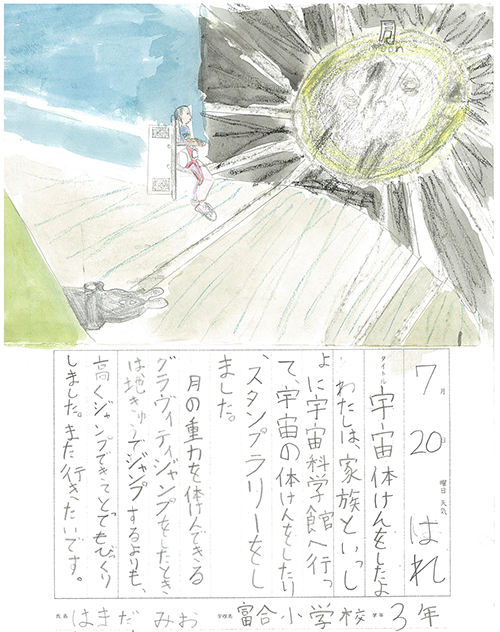 月
moon
7月20日 曜日 天気 はれ
タイトル 宇宙体けんをしたよ
わたしは、家族といっし
ょに宇宙科学館へ行っ
て、宇宙の体けんをしたり
、スタンプラリーをし
ました。
月の重力を体けんできる
グラヴィティジャンプをしたとき
は地きゅうでジャンプするよりも、
高くジャンプできてとてもびっくり
しました。また行きたいです。
氏名 はまだ みお 学校名 富合小学校 学年 3年